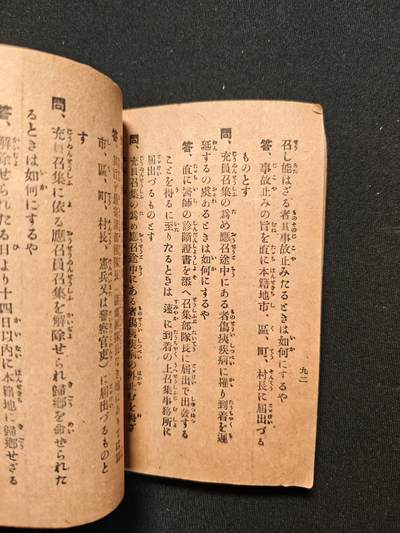 九二
召し能はざる者其事故止みたるときは如何にするや
答、事故止みの旨を直に本籍地市、區、町、村長に屆出づる
ものとす
問、充員召集の爲め應召途中にある者傷痍疾病に罹り到着を遲
延するの虞あるときは如何にするや
答、直に醫師の診斷證書を添へ召集部隊長に屆出で出發する
ことを得るに至りたるときは速に到着の上召集事務所に
屆出づるものとす
問、充員召集の爲め應召途中にある者傷痍疾病
答、
市、區、町、村長、憲兵又は警察官吏)に屆出づるものと
す
問、充員召集に依る應召員召集を解除せられ歸鄕を命ぜられた
るときは如何にするや
答、解除せられたる日より十四日以內に本籍地に歸鄕せざる